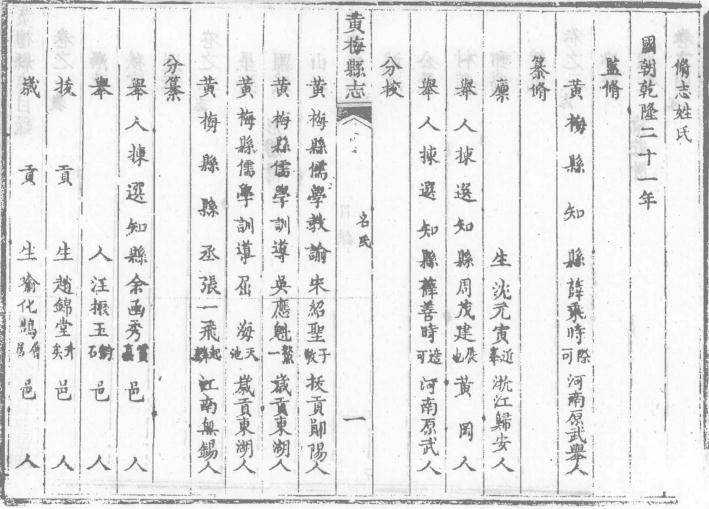 脩志姓氏
國朝乾隆二十一年
監脩
黃梅縣知縣薛乘時際可河南原武舉人
纂脩
廩生沈元寅近峯浙江歸安人
舉人揀選知縣周茂建展也黃岡人
舉人揀選知縣薛善時可造河南原武人
分挍
黃梅縣志
名氏
一
黃梅縣儒學教諭朱紹聖敬子拔貢鄖陽人
黃梅縣儒學訓導吳應魁一鰲歲貢東湖人
黃梅縣儒學訓導屈海天池歲貢東湖人
黃梅縣縣丞張一飛起江南無錫人
分纂
舉人揀選知縣余函秀實邑人
舉人汪振玉石邑人
拔貢生趙錦堂升矣邑人
歲貢生喻化鵠邑人